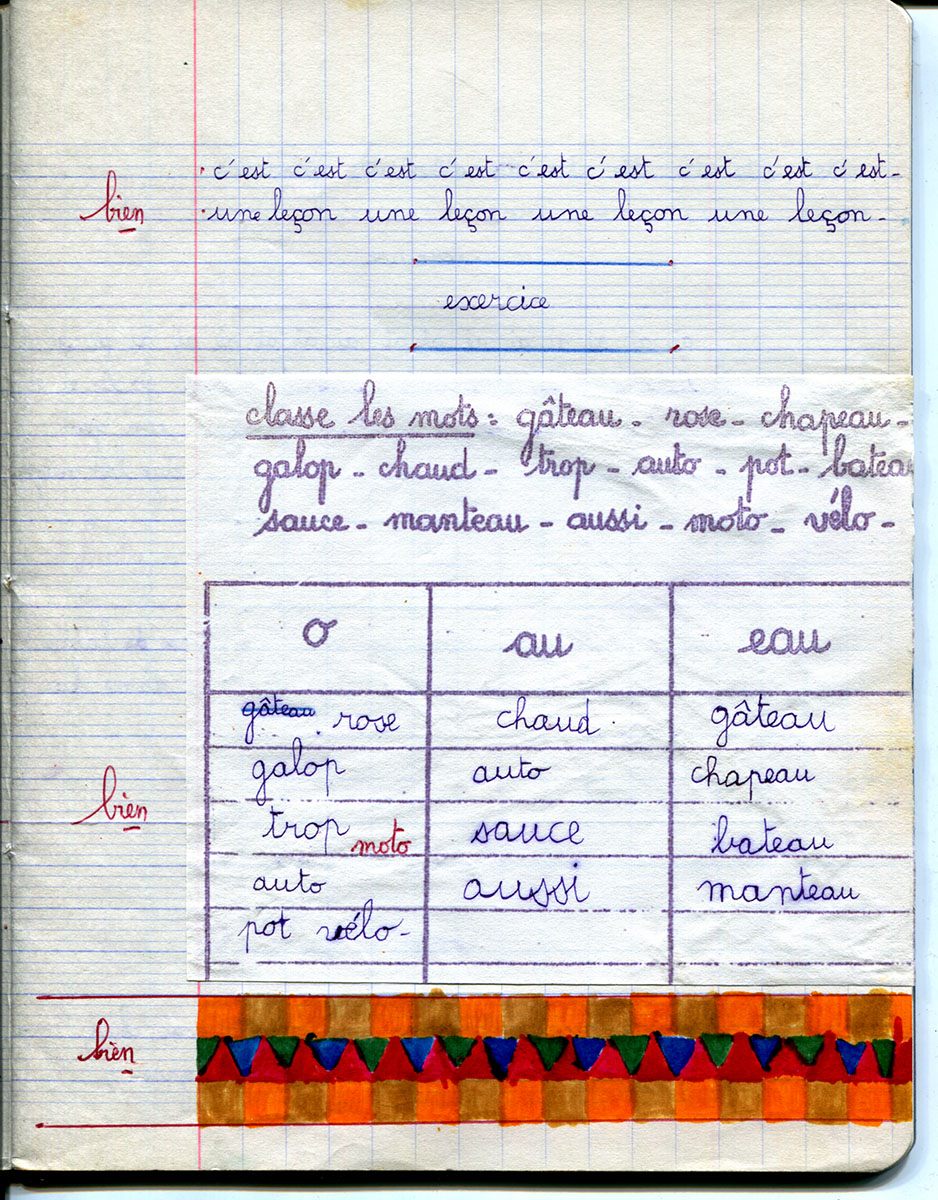 c'est c'est c'est c'est c'est c'est c'est c'est c'est-
bien
une leçon une leçon une leçon une leçon-
exercice
classe les mots: gâteau - rose - chapeau -
galop - chaud - trop - auto - pot - bateau
sauce - manteau - aussi - moto - vélo -
o au eau
gâteau rose chaud gâteau
galop auto chapeau
bien
trop moto sauce bateau
auto aussi manteau
pot vélo-
bien